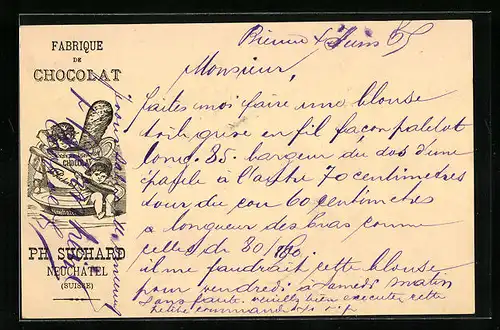 FABRIQUE
DE
CHOCOLAT
CHOCOLAT
PH. SUCHARD
NEUCHATEL
(SUISSE)
Bienne 4 Juin
Monsieur,
faites moi faire une blouse
toile grise en fil façon paletot
long. 85. largeur du dos d'une
épaule à l'autre 70 centimètres
tour du cou 60 centimètres
à longueur des bras comme
celles de 80/
il me faudrait cette blouse
pour vendredi à samedi matin
sans faute. veuillez bien exécuter cette
petite commande s. v. p.